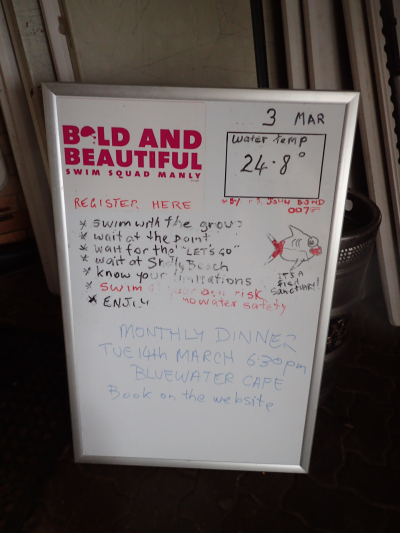 3 MAR
BOLD AND
BEAUTIFUL
SWIM SQUAD MANLY
water temp
24.8°
REGISTER HERE
JOHN BOND
007
* swim with the group
* wait at the point
* wait for the "LET'S GO"
* wait at Shelly Beach
* know your limitations
* swim at your own risk
no water safety
* ENJOY
IT'S A
FISH
SANCTUARY!
MONTHLY DINNER
TUE 14th MARCH 6:30pm
BLUEWATER CAFE
Book on the website